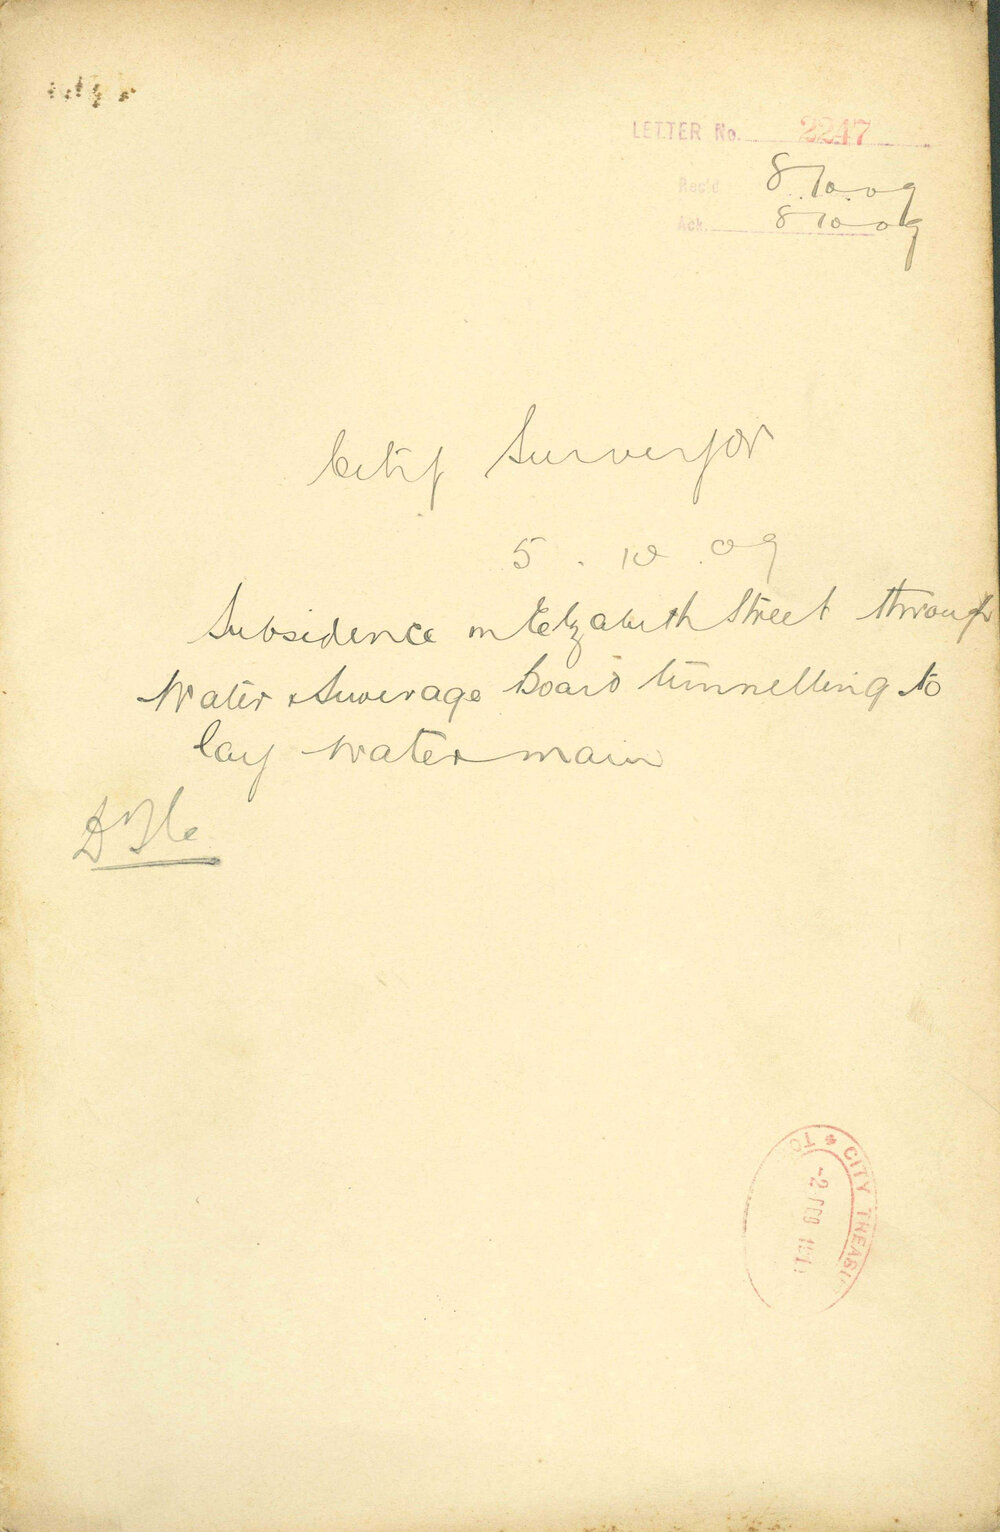 LETTER No. 2247
Rec'd 8.10.09
Ack. 8.10.09
City Surveyor
5.10.09
Subsidence in Elizabeth Street through
Water & Sewerage Board tunnelling to
lay water main
CITY TREASU
TO
-2 FEB 191